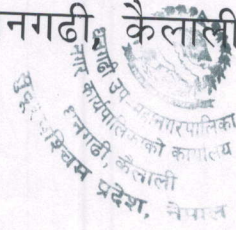 नगढी, कैलाली
धनगढी उप-महानगरपालिका
नगर कार्यपालिकाको कार्यालय
धनगढी, कैलाली
सुदूर पश्चिम प्रदेश, नेपाल